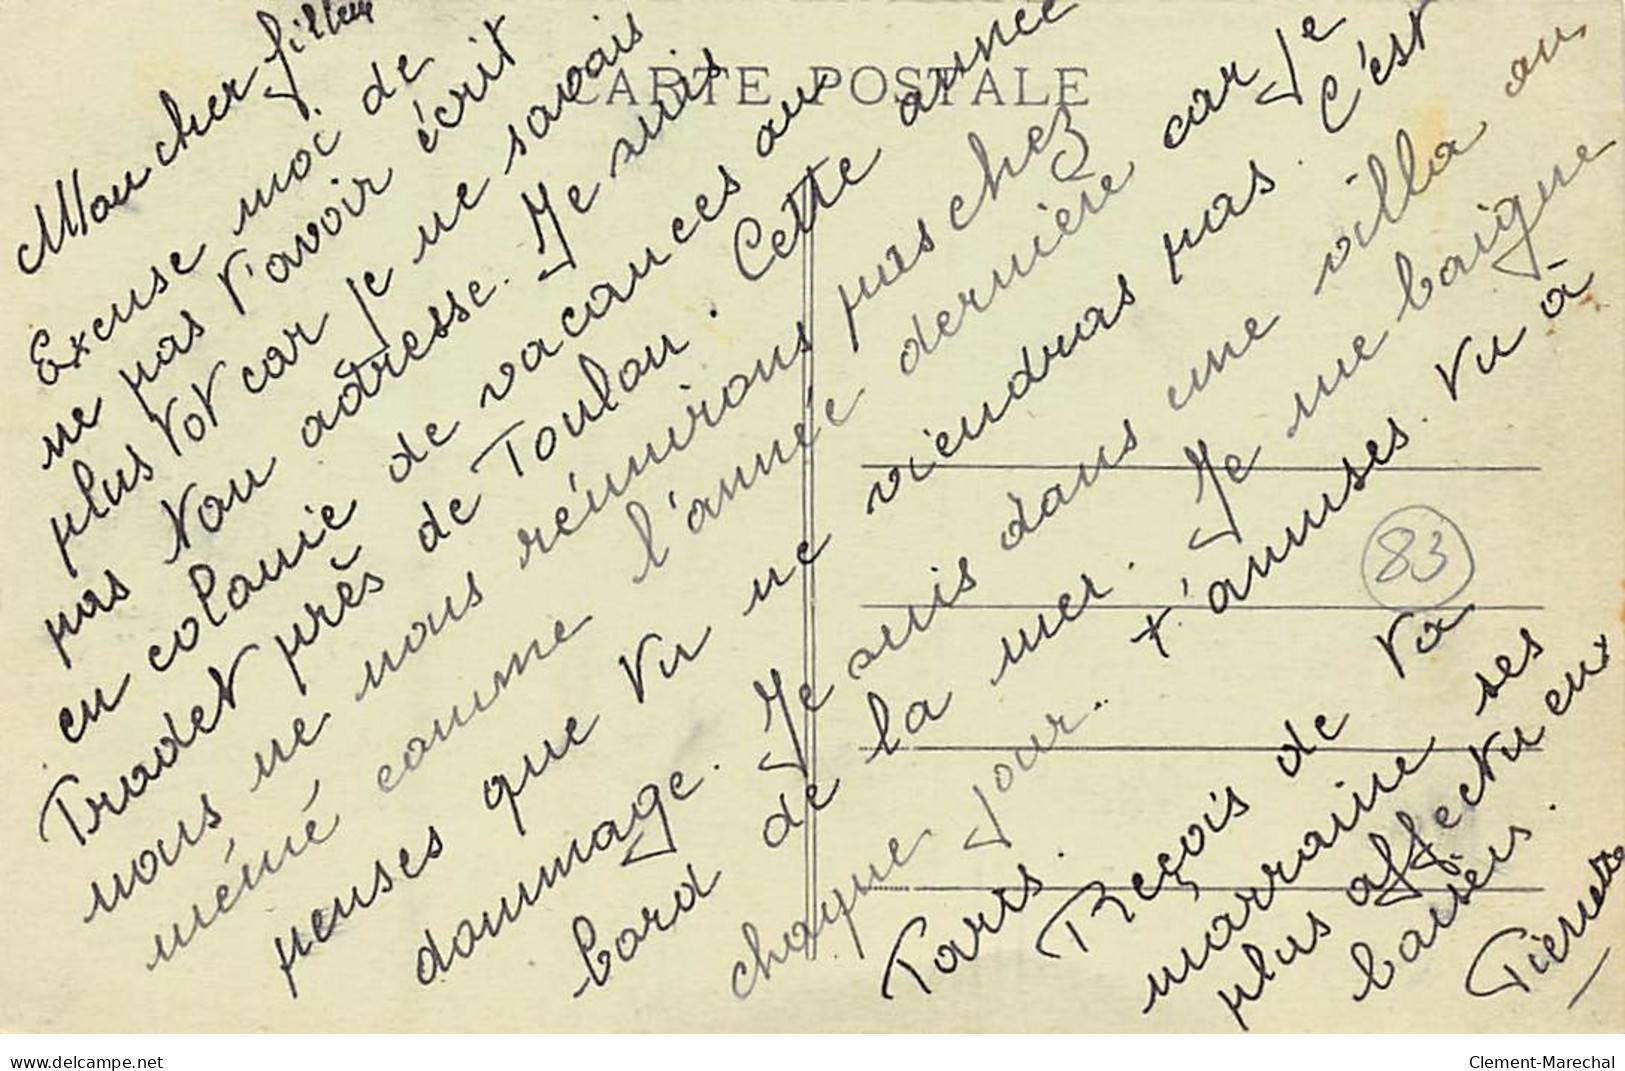 CARTE POSTALE
Mon cher filleu
Excuse moi de
ne pas t'avoir écrit
plus tôt car je ne savais
pas ton adresse. Je suis
en colonie de vacances au
Pradet près de Toulon. Cette année
nous ne nous réunirons pas chez
mémé comme l'année dernière car je
penses que tu ne viendras pas. C'est
dommage. Je suis dans une villa au
bord de la mer. Je me baigne
chaque jour. t'amuses tu à
Paris. Reçois de ta
marraine ses
plus affectueux
baisers.
Pierrette
83
www.delcampe.net
Clement-Marechal